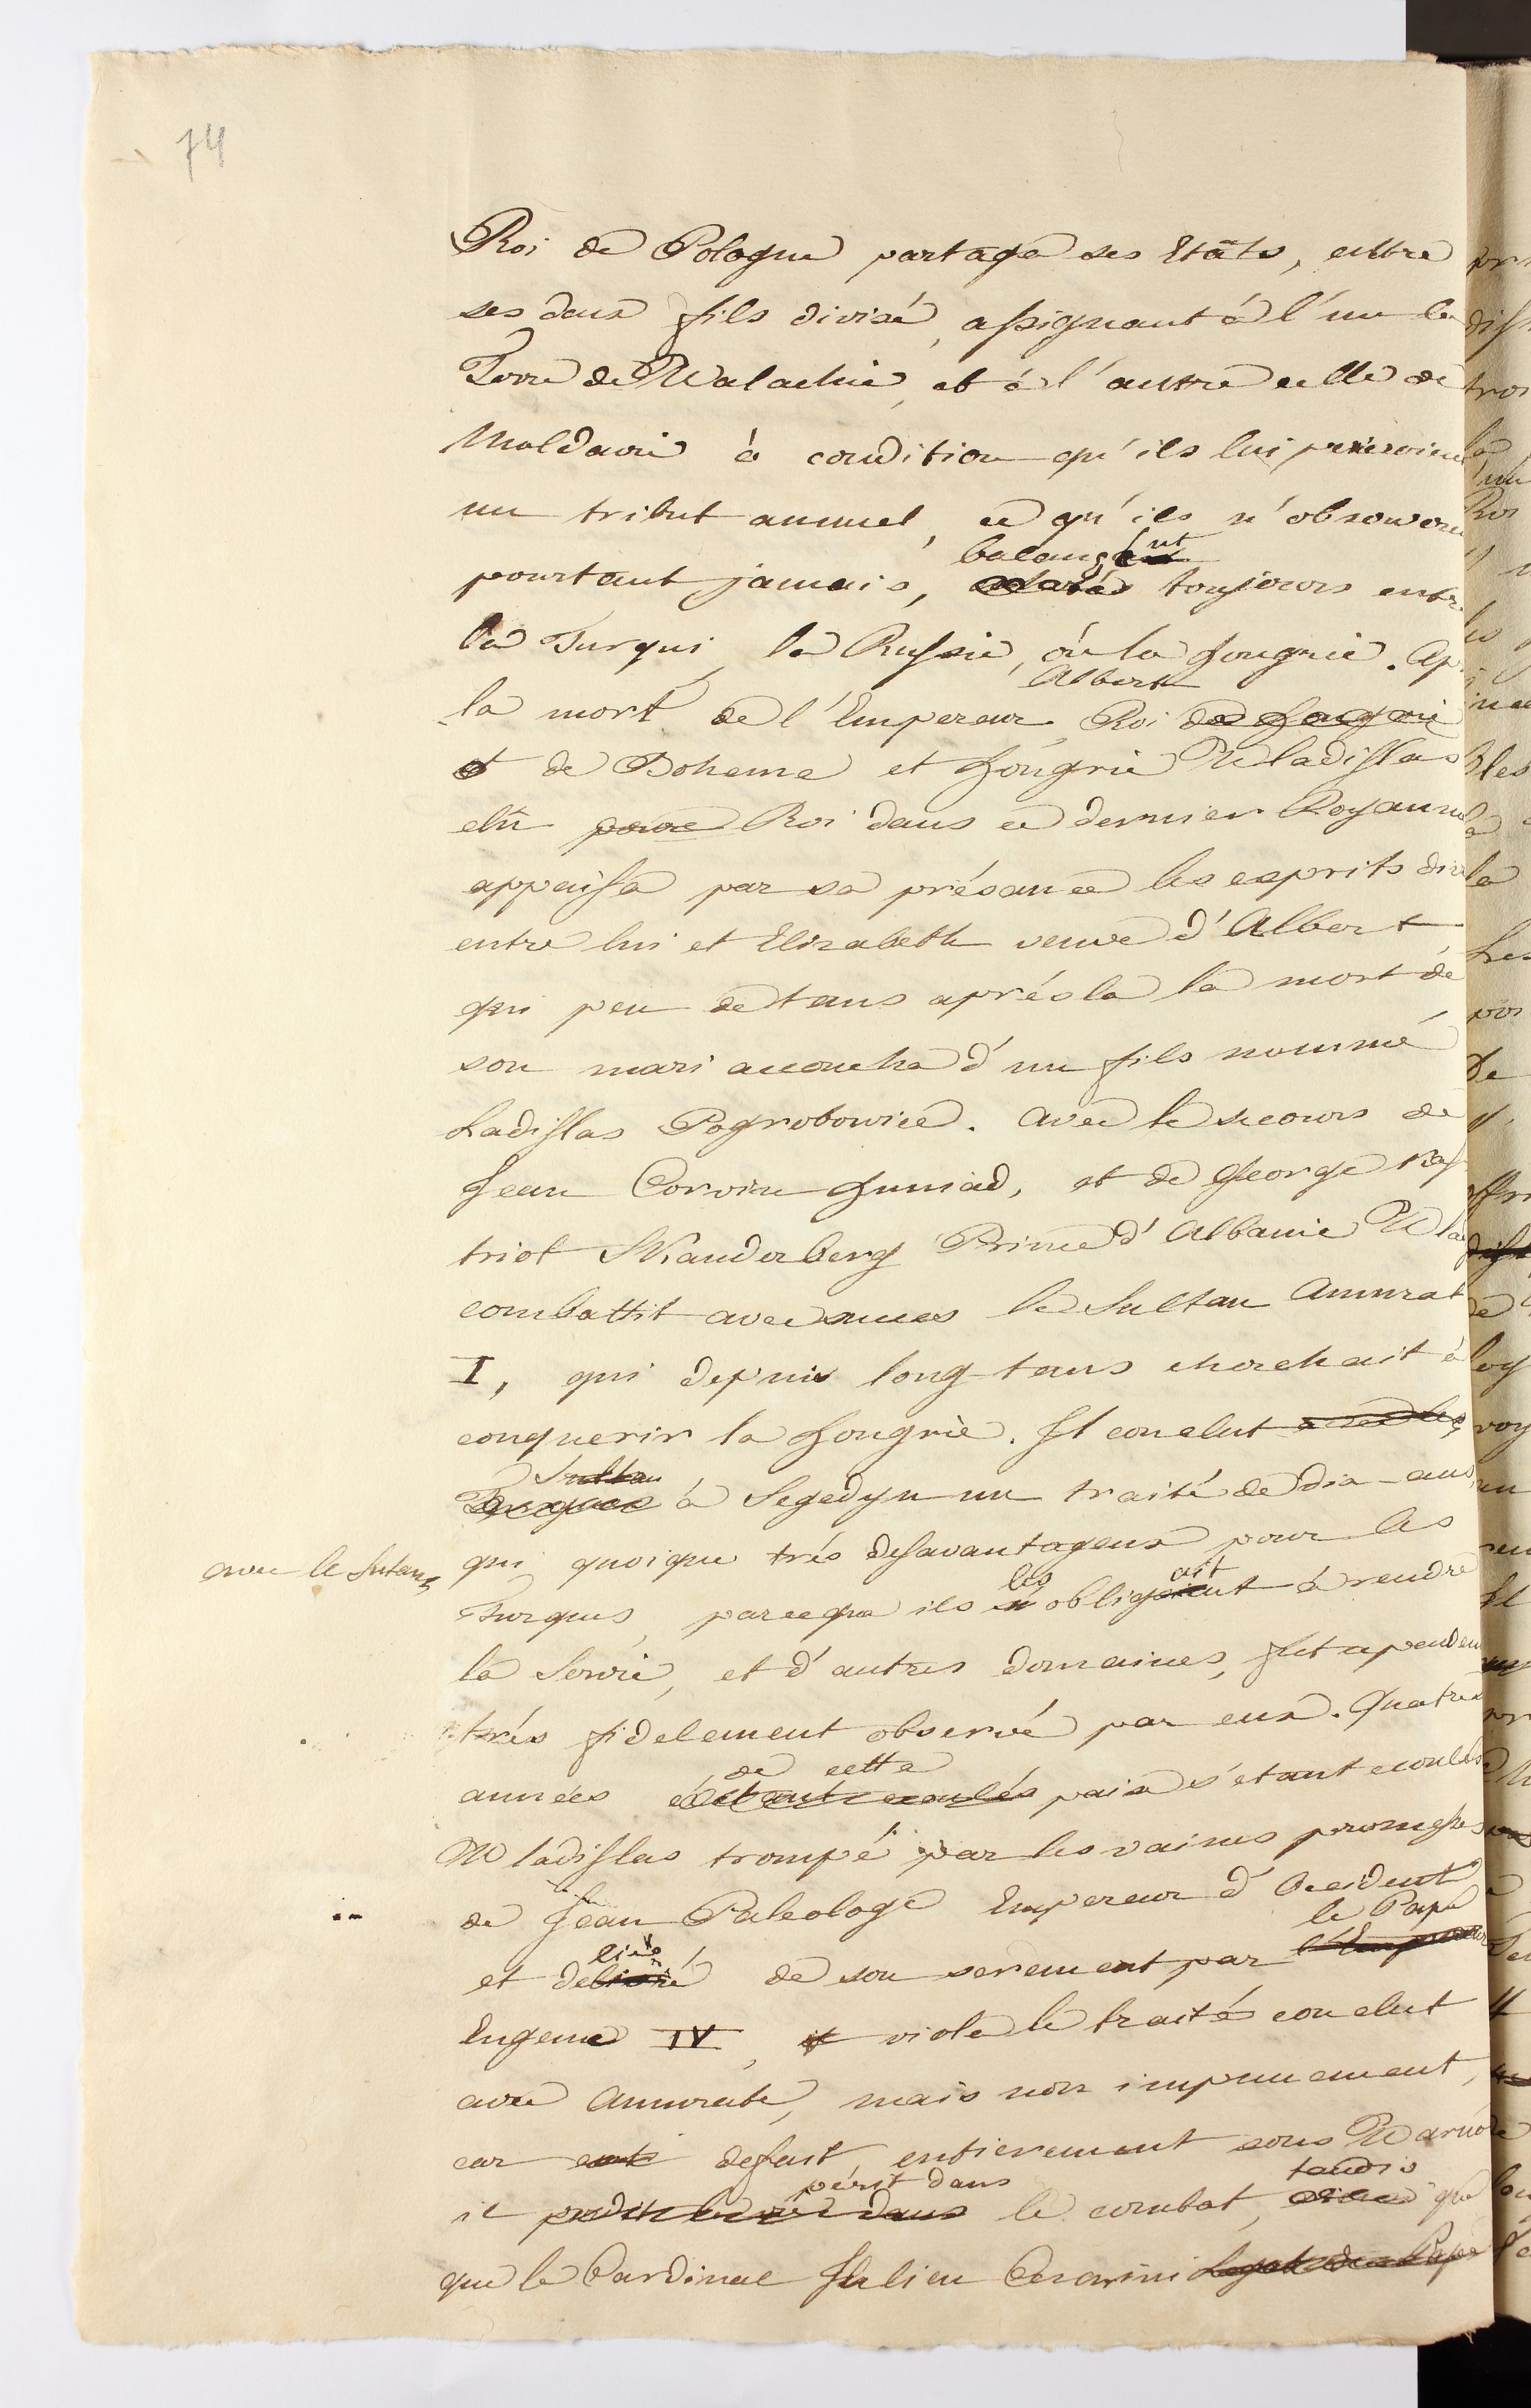 74
Roi de Pologne partagea ses Etâts, entre
ses deux fils divisé, assignant à l'un la
Terre de Walachie, et à l'autre celle de
Moldavie à condition qu'ils lui
un tribut annuel, ce qu'ils n'observere
balançant
pourtant jamais, toujours entr
la Turqui, la Russie, où la Hongrie. Ap
Albert
la mort de l'Empereur Roi de Hongrie
et de Boheme et Hongrie Wladislas
elû pour Roi dans ce dernier Royaume
appaisa par sa présance les esprits div
entre lui et Elizabeth veuve d'Albert
qui peu de tans après la la mort de
son mari accoucha d'un fils nommé
Ladislas Pogrobowice. Avec le secours de
Jean Corvin Huniad, et de George Kas
triot Skanderberg Prince d'Albanie Wla
combattit avec succes le Sultan Amurat
I, qui depuis long-tans cherchait à
conquerir la Hongrie. Il conclut avec les
Sultan
Turques à Segedyn un traité de dix-ans,
avec le Sutan
qui quoique très desavantageux pour les
les ait
Turques, parceque ils obligeient à rendre
la Servie, et d'autres domaines, fut cependen
très fidelement observé par eux. Quatres
de cette
années étant ecoulés paix s'etant ecoulés
Wladislas trompé par les vaines promesses
de Jean Paleologe Empereur d'Occident
lié le Pape
et de son serement par l'Empereur
Eugene IV, et viola le traité conclut
avec Amurate, mais non impunement,
car defait entierement sous Warne
périt dans tandis
il perdit la vie dans le combat, que
que le Cardinal Julien Cesarini Legat du Pape